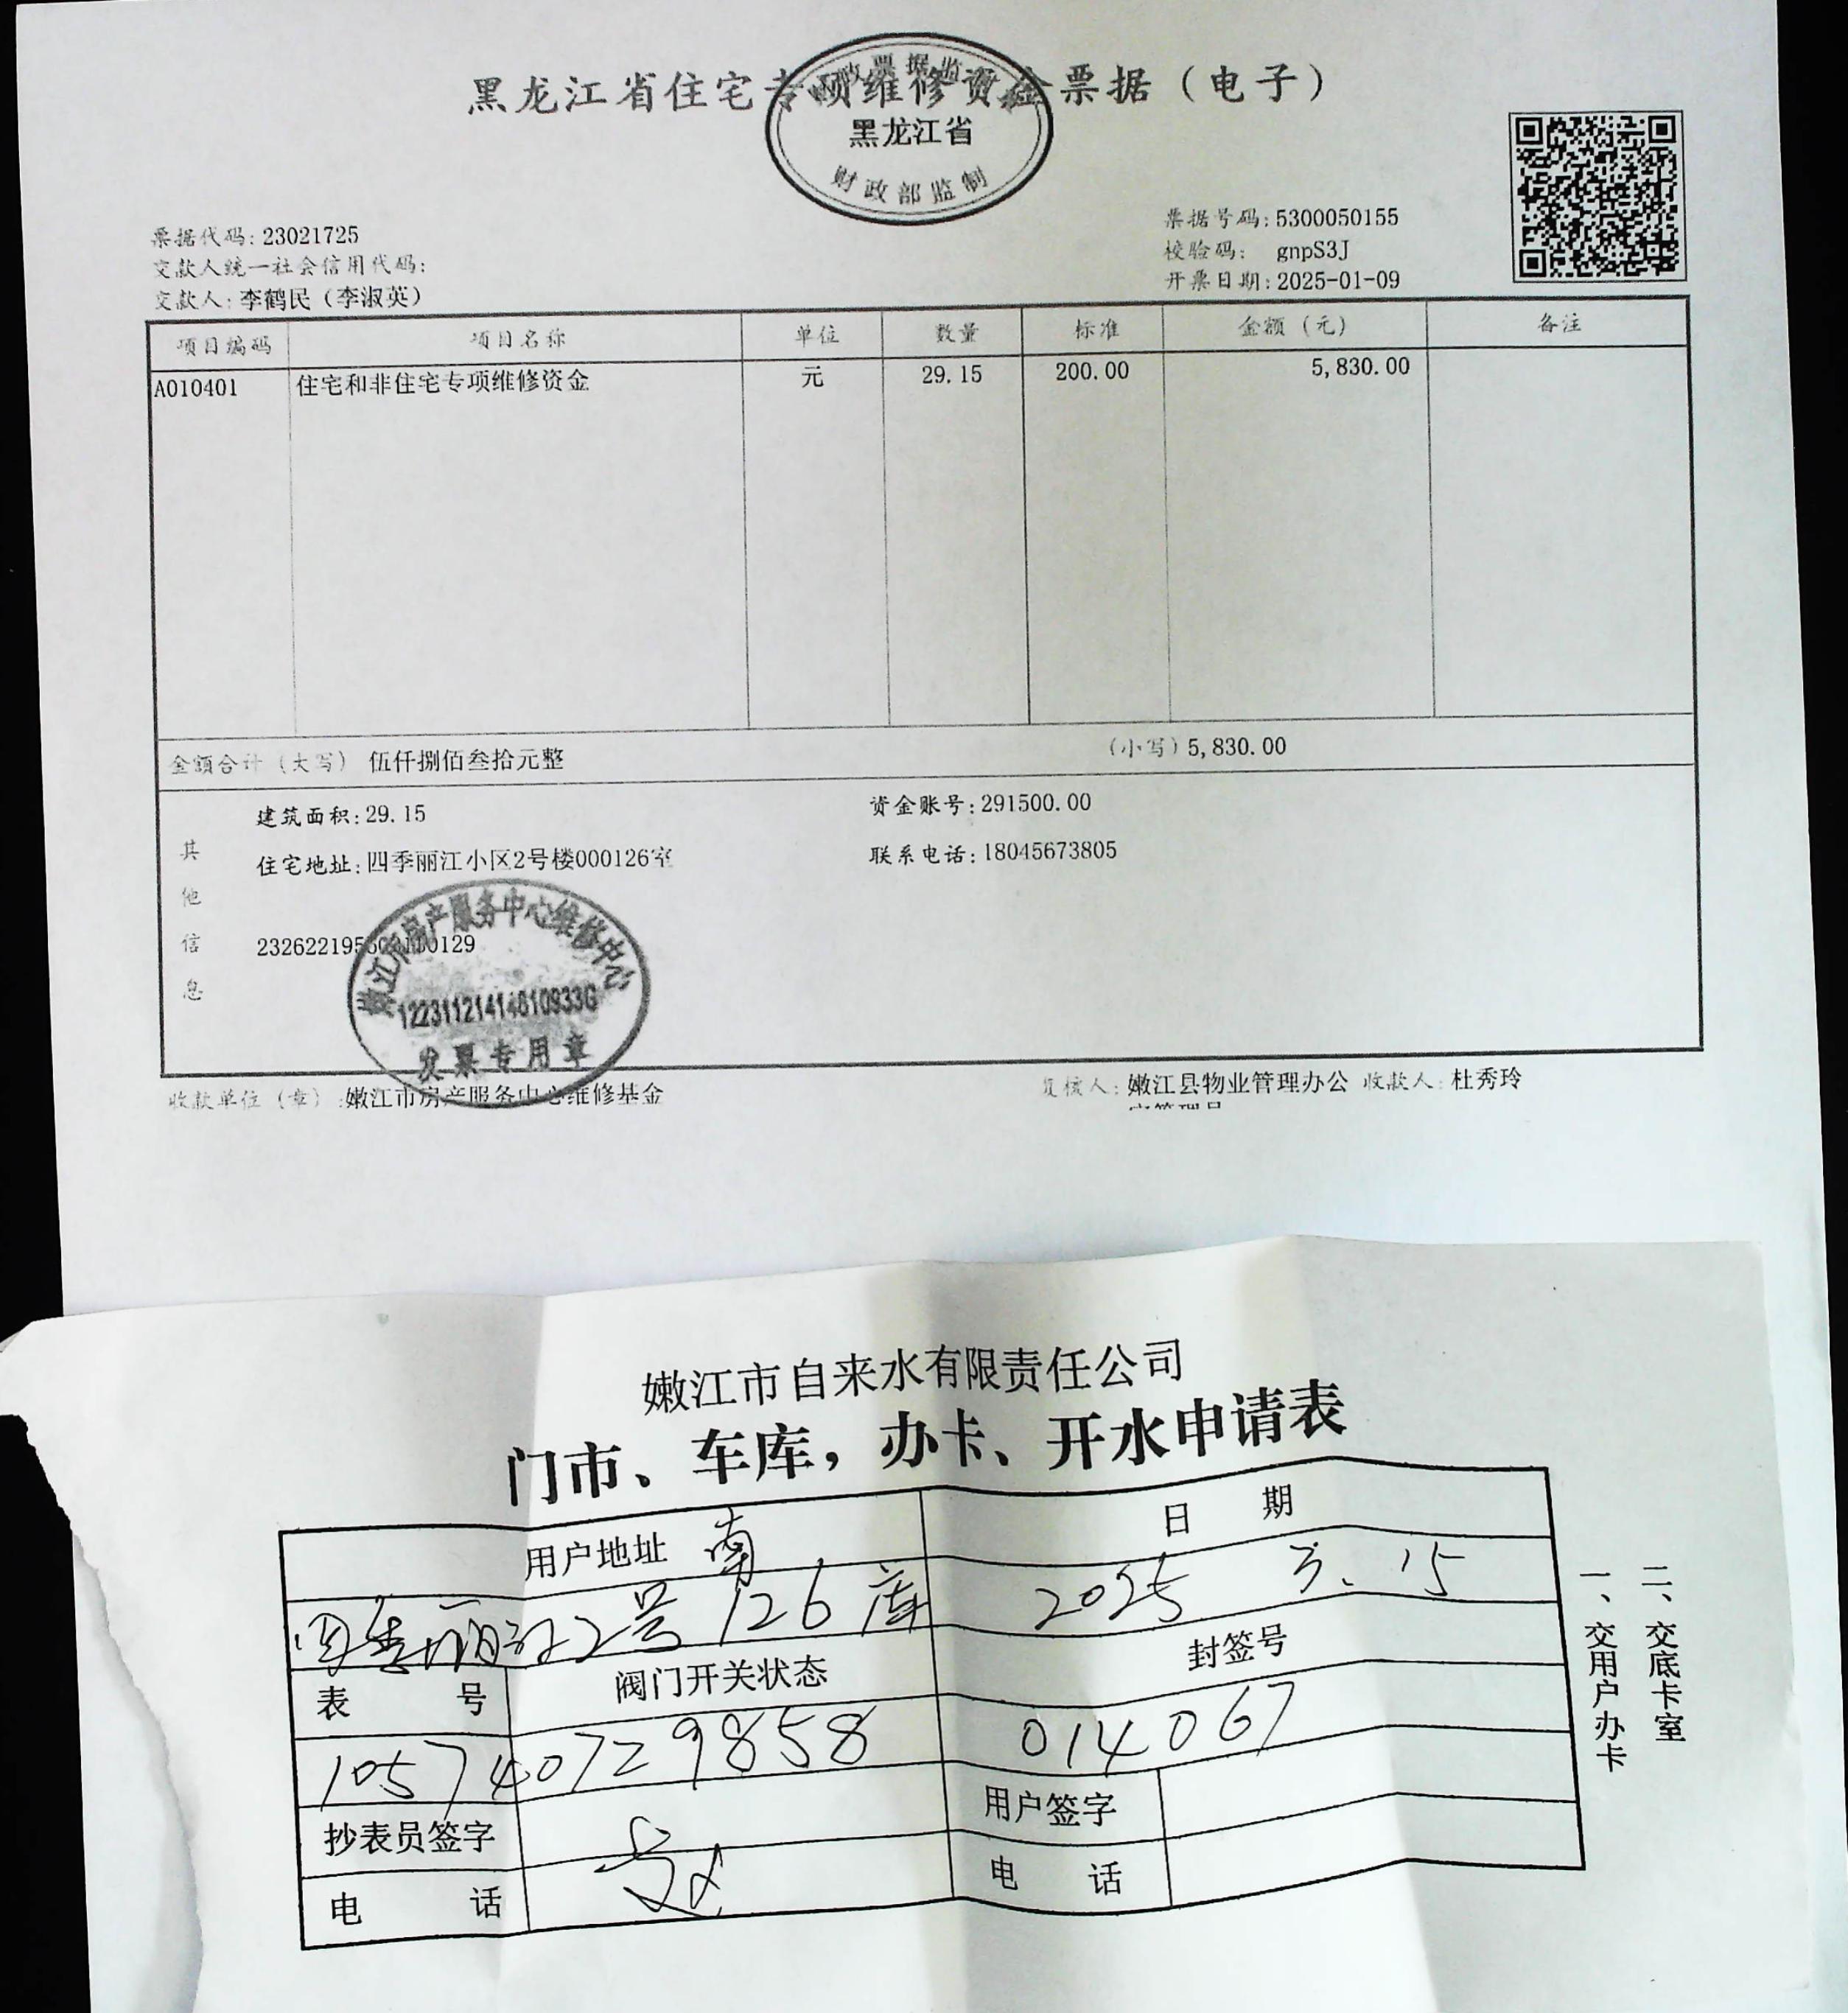 黑龙江省住宅专项维修资金票据（电子）
黑龙江省
财政部监制
票据代码:23021725
票据号码:5300050155
交款人统一社会信用代码:
校验码: gnpS3J
交款人:李鹤民（李淑英）
开票日期:2025-01-09
项目编码 项目名称 单位 数量 标准 金额（元） 备注
A010401 住宅和非住宅专项维修资金 元 29.15 200.00 5,830.00
金额合计（大写） 伍仟捌佰叁拾元整 （小写）5,830.00
其他信息
建筑面积:29.15 资金账号:291500.00
住宅地址:四季丽江小区2号楼000126室 联系电话:18045673805
嫩江市房产服务中心维修中心
12231121414610933G
发票专用章
收款单位（章）:嫩江市房产服务中心维修基金 复核人:嫩江县物业管理办公 收款人:杜秀玲
室管理员
嫩江市自来水有限责任公司
门市、车库，办卡、开水申请表
用户地址 南 日 期
四季丽江2号126库 2025 3.15
表 号 阀门开关状态 封签号
105740729858 014067
抄表员签字 用户签字
电 话 电 话
一、交用户办卡
二、交底卡室